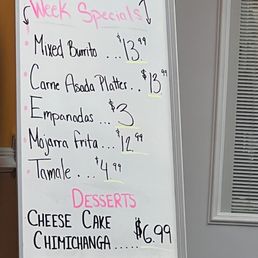 Week Specials
Mixed Burrito ... $13.99
Carne Asada Platter.. $13.99
Empanadas ... $3
Mojarra frita... $12.99
Tamale ... $4.99
DESSERTS
CHEESE CAKE
CHIMICHANGA ..... $6.99